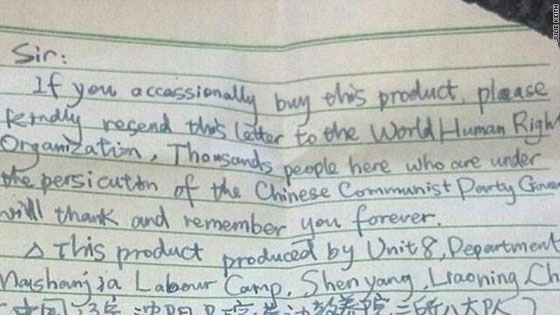 Sir:
If you accassionally buy this product, please
kindly resend this letter to the World Human Righ
Organization, Thousands people here who are under
the persicution of the Chinese Communist Party Gove
will thank and remember you forever.
△ This product produced by Unit 8, Department
Mashanjia Labour Camp, Shenyang, Liaoning, Ch
JULIE KEITH